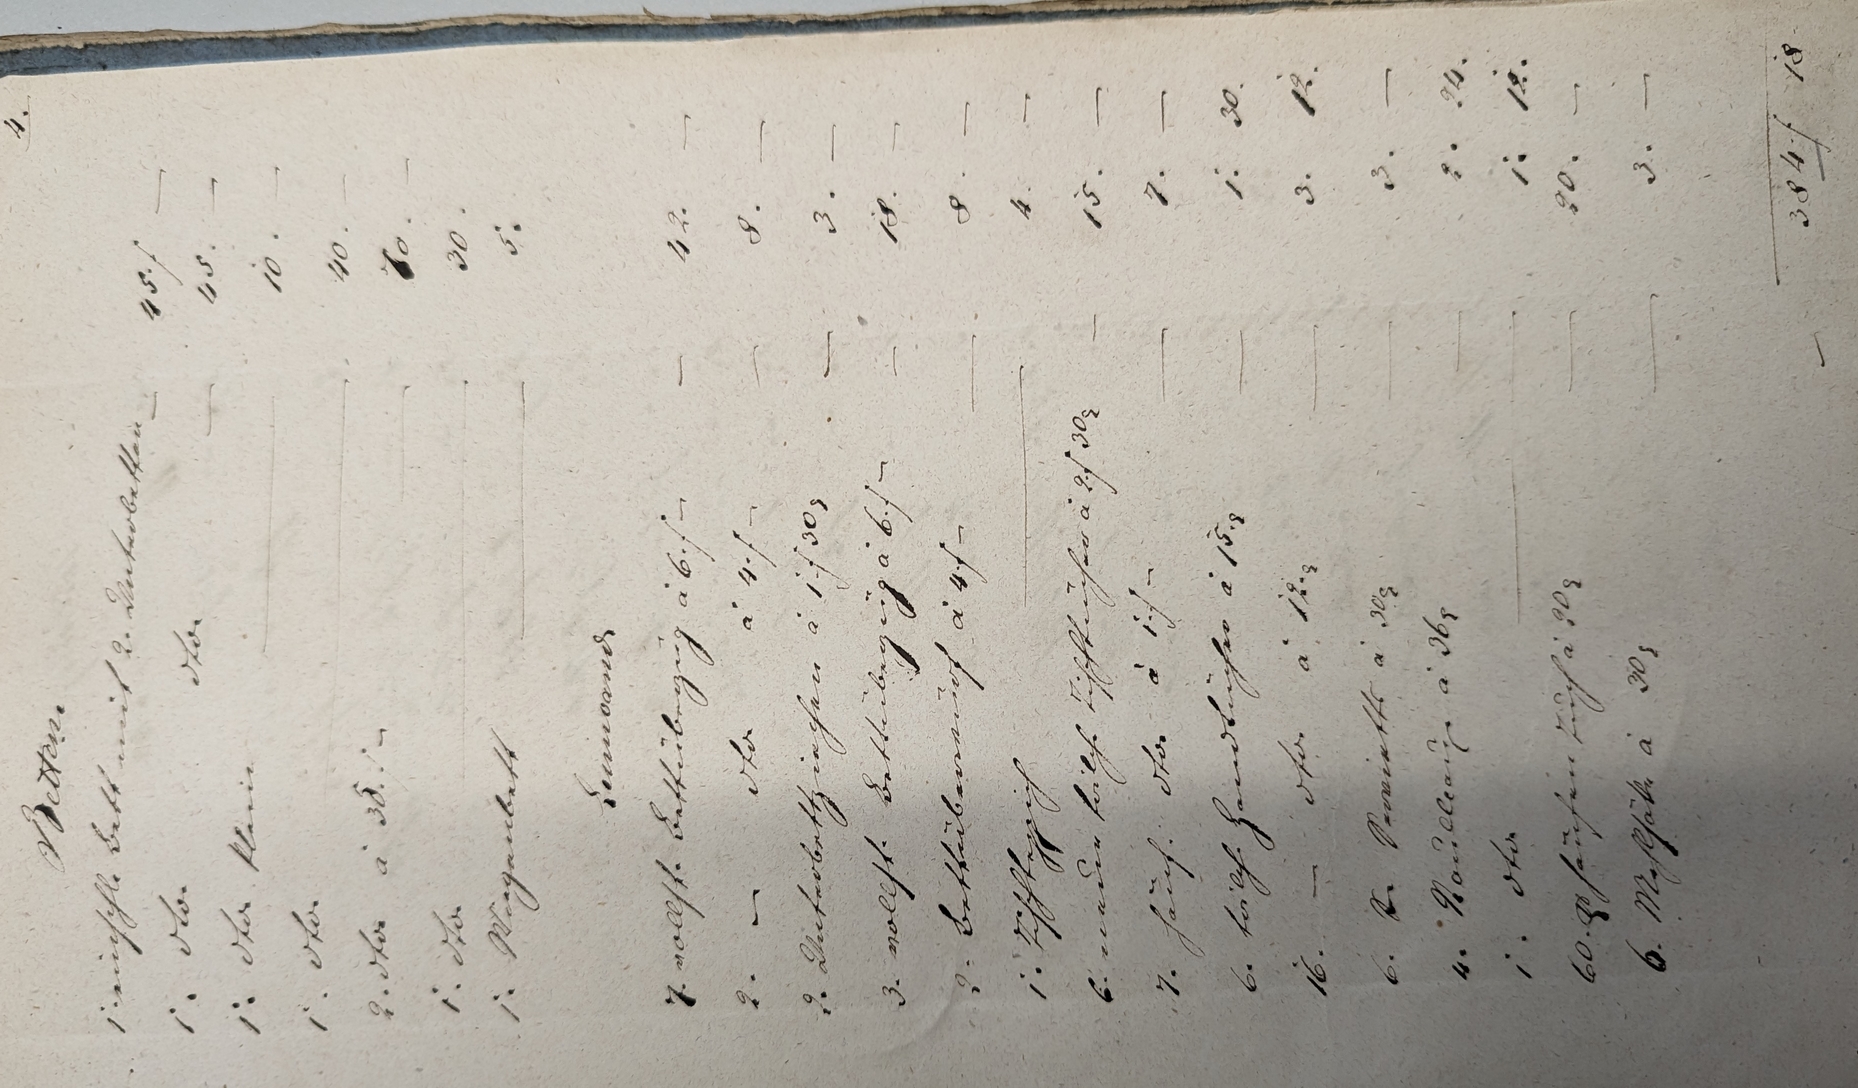 4.
Betten.
1. einschl. Bett mit 2. Unterbetten — 45.f —
1. dto dto — 45. —
1. dto klein — 10. —
1. dto — 40. —
2. dto à 35.f — 70. —
1. dto — 30.
1. Wiegenbett — 5.
Leinwand
7. vollst. Bettüberzüg à 6.f — — 42. —
2. — dto à 4.f — — 8. —
2. Unterbettziechen à 1.f 30 — 3. —
3. vollst. Bettüberzüg à 6.f — — 18. —
2. Bettüberwürf à 4.f — — 8. —
1. Tischteppich — 4. —
6. neue Tischtücher à 2.f 30 — 15. —
7. dto à 1.f — — 7. —
6. Handtücher à 15. — 1. 30.
16. — dto à 12. — 3. 12.
6. Servietts à 30 — 3. —
4. Rouleaux à 36 — 2. 24.
1. dto — 1. 12.
60. Tuch à 20 — 20. —
6. Mehlsäcke à 30 — 3. —
— 384.f 18